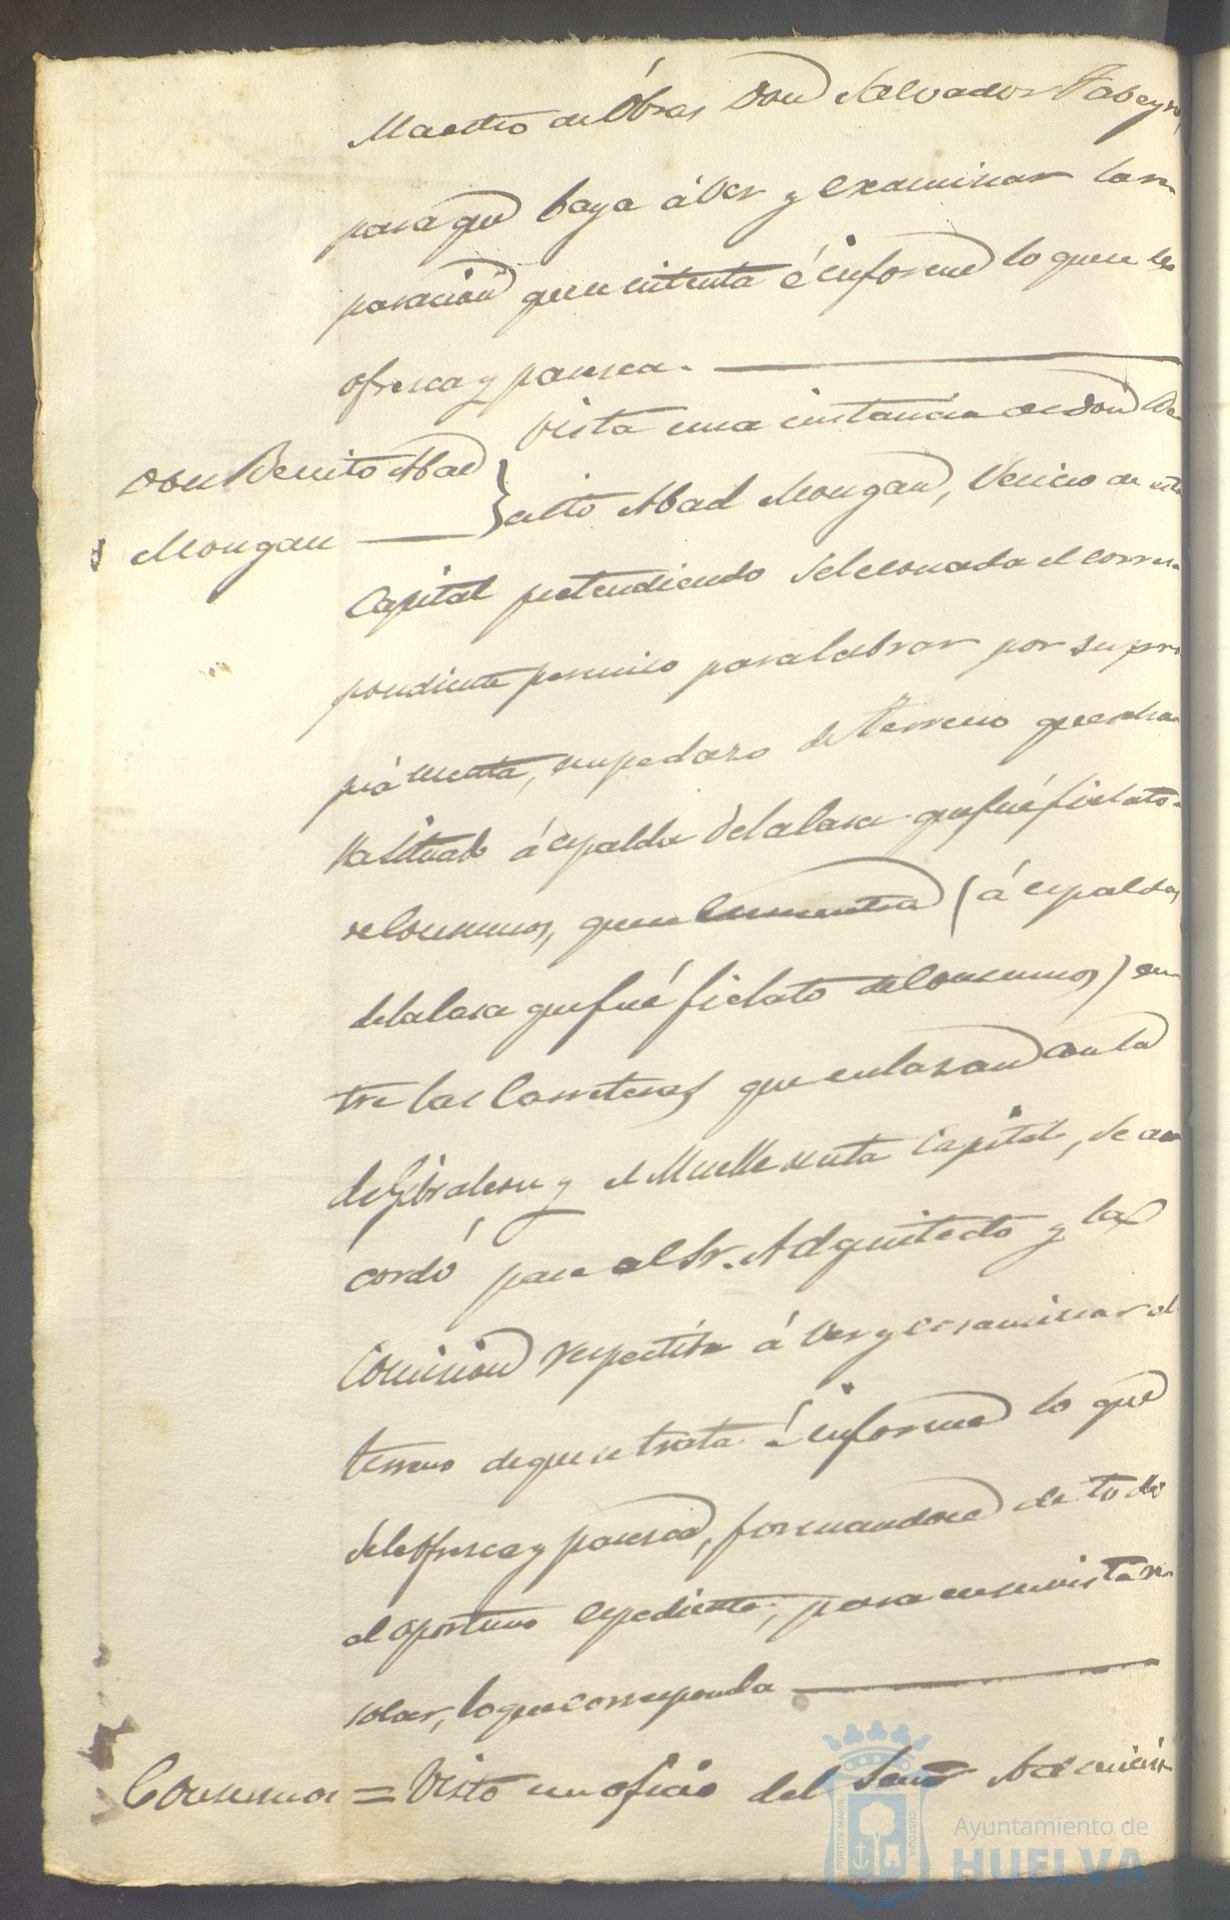 Maestro de Obras Don Salvador Tabeyro,
para que baya á ver y examinar la re-
paracion que se intenta é informe lo que se le
ofresca y paresca.
Vista una instancia de Don Be-
Don Benito Abad
Mongan
nito Abad Mongan, Vecino de esta
Capital pretendiendo se le conceda el corres-
pondiente permiso para labrar por su pro-
pia cuenta, un pedazo de terreno que se ha-
lla situado á espalda de la casa que fué fielato
de Consumos, que se encuentra (á espaldas
de la casa que fué fielato de Consumos) en-
tre las Carreteras que enlasan con la
de Gibraleon y el Muelle de esta Capital, se a-
cordó pase al Sr. Adquitecto y la
Comision respectiva á ver y ecsaminar el
terreno de que se trata é informe lo que
se le ofresca y paresca, formandose de todo
el oportuno espediente, para en su vista re-
solver, lo que corresponda
Consumos = Visto un oficio del Señor Adminis-
Ayuntamiento de
HUELVA
PORTUS MARIS
CUSTODIA